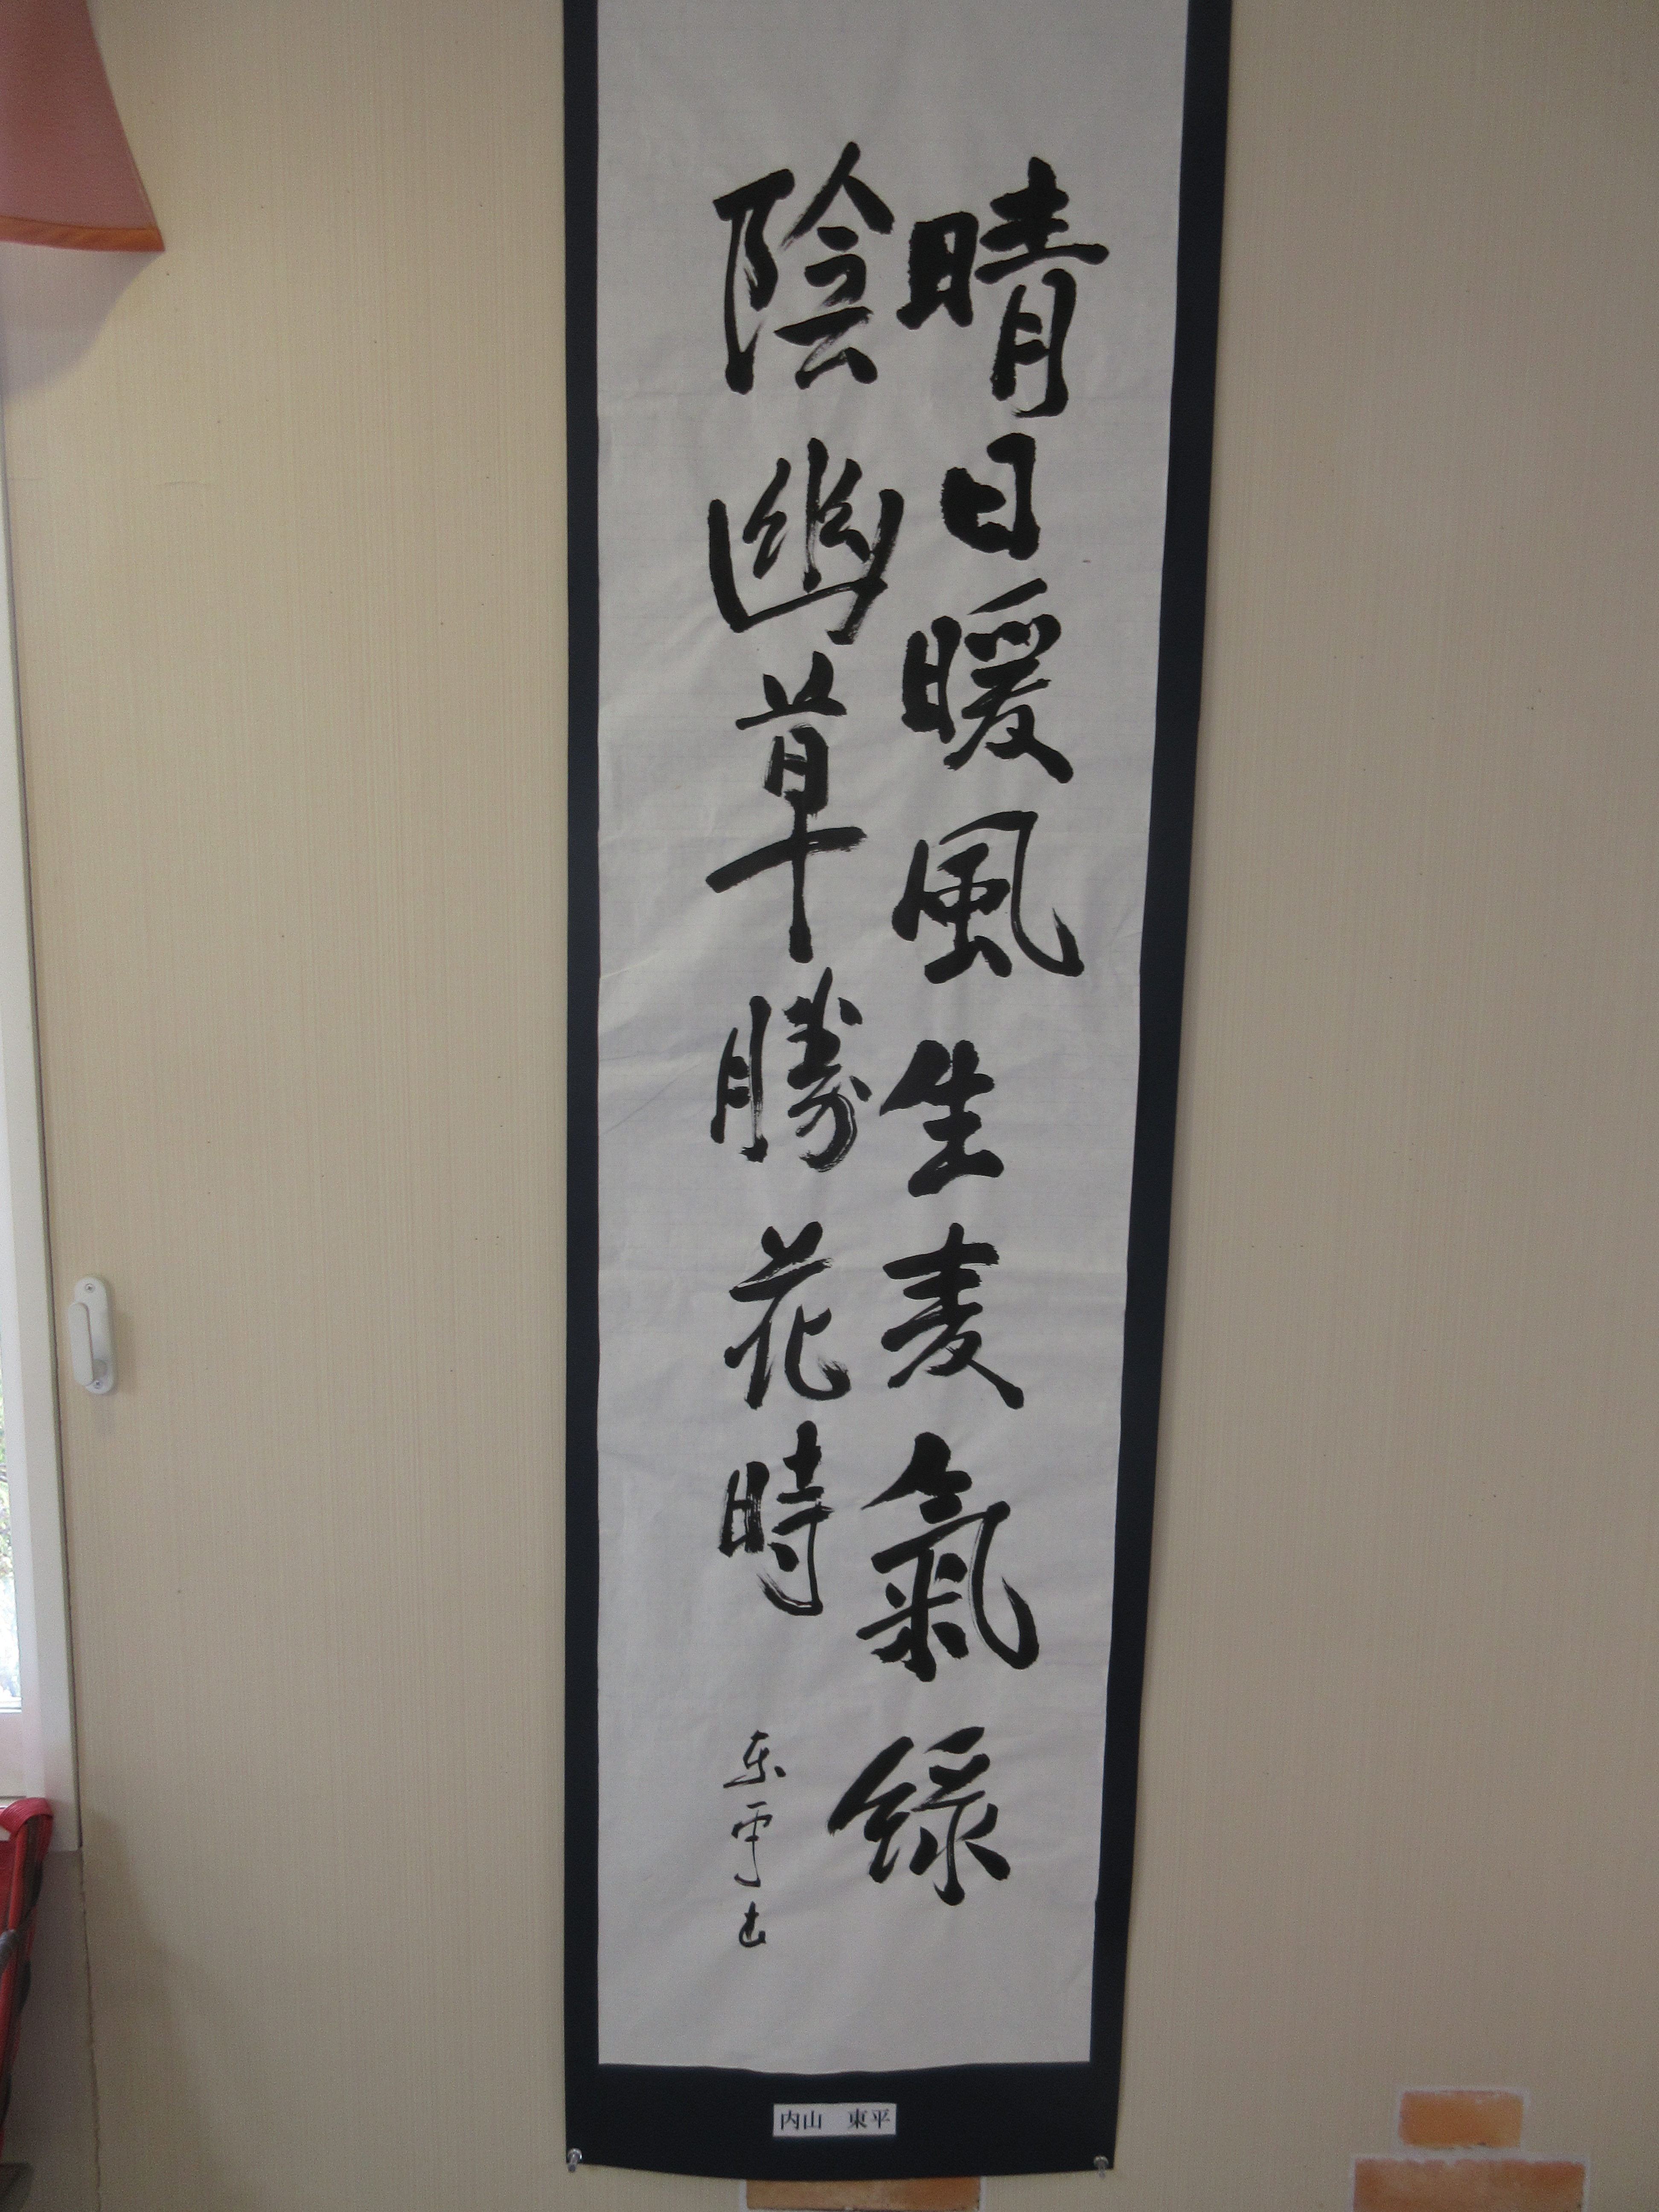 晴日暖風生麦氣緑
陰幽草勝花時
東平
内山　東平